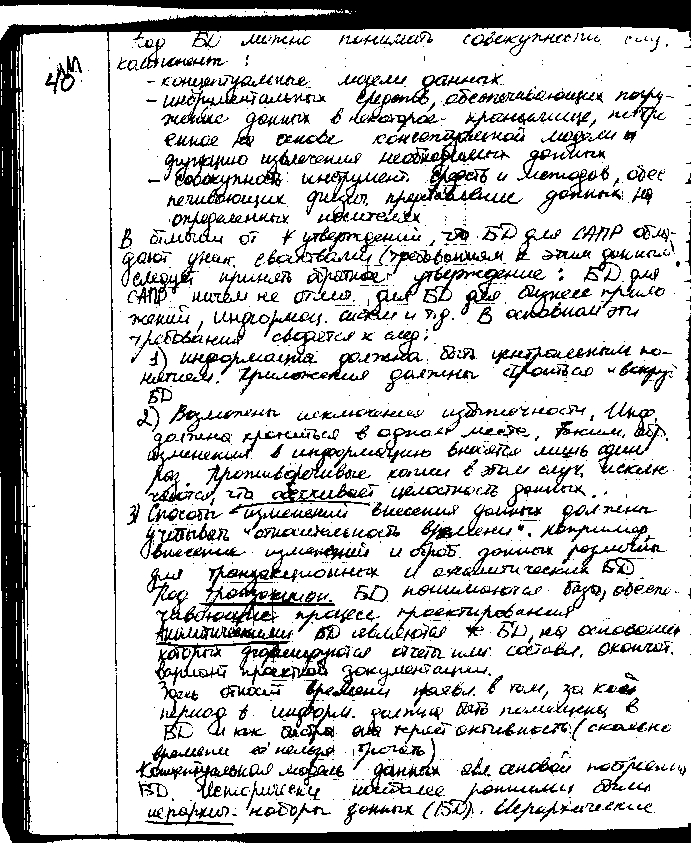 Под БД можно понимать совокупность след.
компонент:
- концептуальные модели данных
- инструментальных средств, обеспечивающих погру-
жение данных в некоторое хранилище, постро
енное на основе концептуальной модели и
функцию извлечения необходимых данных
- совокупность инструмент. средств и методов, обес
печивающих физич. представление данных на
определенных носителях
В отличии от утверждений, что БД для САПР обла-
дают уник. свойствами (требованиям к этим данным)
следует принять обратное утверждение: БД для
САПР ничем не отлич. для БД для бизнес прило
жений, информац. систем и т.д. В основном эти
требования сводятся к след:
1) информация должна быть центральным по-
нятием. Приложения должны строиться "вокруг"
БД
2) Возможены исключения избыточности. Инф.
должна храниться в одном месте, таким обр.
изменения в информацию вносятся лишь один
раз. Противоречивые копии в этом случ. исклю-
чаются, что обеспечивает целостность данных.
3) Способы изменений внесения данных должны
учитывать "относительность времени". Например
внесение изменений и обраб. данных различны
для транзакционных и аналитических БД
Под транзакцион. БД понимаются базы, обеспе-
чивающие процесс проектирования
Аналитическими БД являются БД, на основании
которых формируются отчеты или составл. окончат.
вариант проектной документации.
Здесь относит. времени проявл. в том, за какой
период в информ. должна быть помещена в
БД и как быстро она теряет активность (сколько
времени её нельзя трогать)
Концептуальная модель данных явл. основой построения
БД. Исторически наиболее ранними были
иерархич. наборы данных (БД). Иерархические